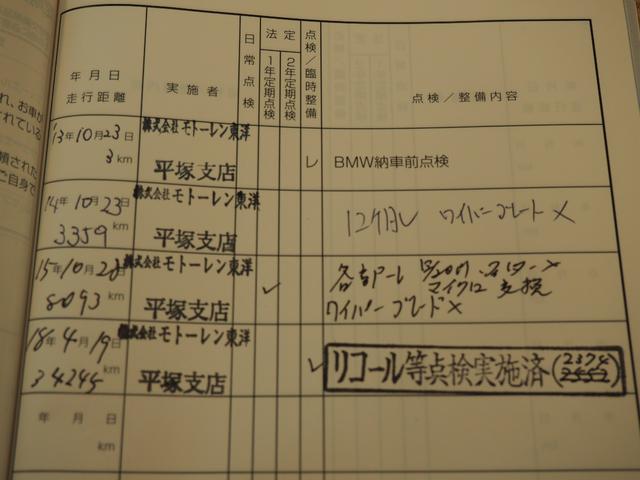 れ、お車が
されている
頼された
ご自身で
年月日
走行距離
実施者
日常点検
法定
1年定期点検
2年定期点検
点検／臨時整備
点検／整備内容
'13年10月23日
3km
株式会社モトーレン東洋
平塚支店
レ
BMW納車前点検
14年10月23日
3359km
株式会社モトーレン東洋
平塚支店
12ヶ月レ ワイパーブレード ×
15年10月28日
8093km
株式会社モトーレン東洋
平塚支店
✓
マイクロ 交換
ワイパーブレード×
18年4月19日
34245km
株式会社モトーレン東洋
平塚支店
✓
リコール等点検実施済(2374
2552)
年月日
km